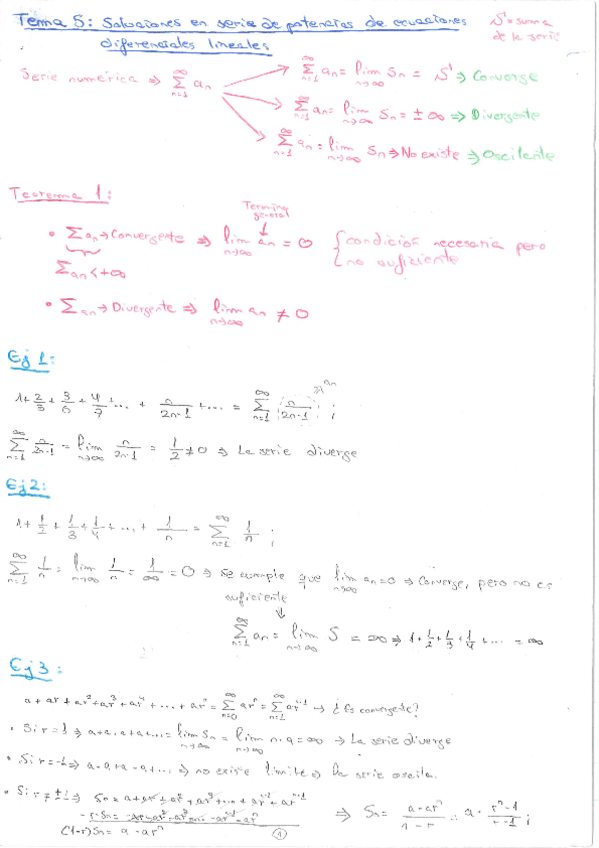 Tema 5: Soluciones en serie de potencias de ecuaciones
diferenciales lineales
S = suma de la serie
Serie numérica ⇒ ∑_{n=1}^{∞} a_n
∑_{n=1}^{∞} a_n = lim_{n→∞} S_n = S ⇒ Converge
∑_{n=1}^{∞} a_n = lim_{n→∞} S_n = ±∞ ⇒ Divergente
∑_{n=1}^{∞} a_n = lim_{n→∞} S_n ⇒ No existe ⇒ Oscilente
Teorema 1:
Termino general
• ∑a_n → Convergente ⇒ lim_{n→∞} a_n = 0 { condición necesaria pero no suficiente
∑a_n < +∞
• ∑a_n → Divergente ⇒ lim_{n→∞} a_n ≠ 0
Ej 1:
1 + 2/3 + 3/6 + 4/7 + ... + n/(2n-1) + ... = ∑_{n=1}^{∞} n/(2n-1) ; → a_n
∑_{n=1}^{∞} n/(2n-1) = lim_{n→∞} n/(2n-1) = 1/2 ≠ 0 ⇒ La serie diverge
Ej 2:
1 + 1/2 + 1/3 + 1/4 + ... + 1/n = ∑_{n=1}^{∞} 1/n ;
∑_{n=1}^{∞} 1/n = lim_{n→∞} 1/n = 1/∞ = 0 ⇒ Se cumple que lim_{n→∞} a_n = 0 ⇒ Converge, pero no es
suficiente
∑_{n=1}^{∞} a_n = lim_{n→∞} S = ∞ ⇒ 1 + 1/2 + 1/3 + 1/4 + ... = ∞
Ej 3:
a + ar + ar² + ar³ + ar⁴ + ... + arⁿ = ∑_{n=0}^{∞} arⁿ = ∑_{n=1}^{∞} arⁿ⁻¹ → ¿Es convergente?
• Si r = 1 ⇒ a + a + a + a... = lim_{n→∞} S_n = lim_{n→∞} n·a = ∞ ⇒ La serie diverge
• Si r = -1 ⇒ a - a + a - a + ... ⇒ no existe limite ⇒ La serie oscila.
• Si r ≠ ±1 ⇒ S_n = a + ar + ar² + ar³ + ... + arⁿ⁻² + arⁿ⁻¹
- r·S_n = -ar - ar² - ar³ ... - arⁿ⁻¹ - arⁿ
(1-r)S_n = a - arⁿ
⇒ S_n = (a - arⁿ)/(1 - r) = a · (rⁿ - 1)/(r - 1) ;
1